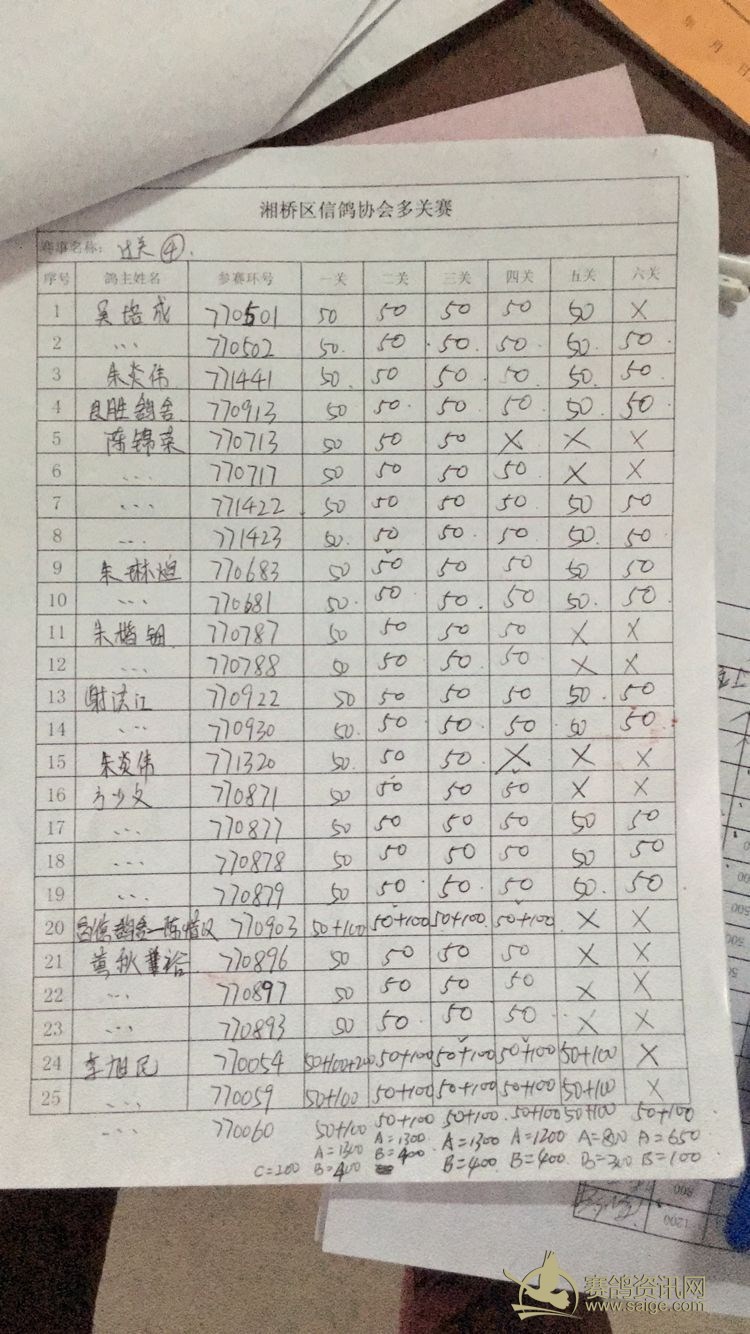 年 月 日
湘桥区信鸽协会多关赛
赛事名称: 过关④.
序号 鸽主姓名 参赛环号 一关 二关 三关 四关 五关 六关
1 吴培成 770501 50 50 50 50 50 X
2 ... 770502 50. 50 50. 50 50. 50
3 朱炎伟 771441 50. 50 50 50 50. 50
4 良胜鸽舍 770913 50 50 50 50 50 50
5 陈锦荣 770713 50 50 50 X X X
6 ... 770717 50 50 50 50 X X
7 ... 771422 50 50 50 50 50 50
8 ... 771423 50. 50 50 50 50. 50
9 朱琳煌 770683 50 50 50 50 50 50
10 ... 770681 50. 50 50. 50 50. 50
11 朱楷钿 770787 50 50 50 50 X X
12 ... 770788 50 50 50 50 X X
13 谢洪江 770922 50 50 50 50 50. 50
14 ... 770930 50. 50 50 50 50 50
15 朱炎伟 771320 50. 50 50 X X X
16 方少文 770871 50 50 50 50 X X
17 ... 770877 50 50 50 50 50 50
18 ... 770878 50 50 50 50 50 50
19 ... 770879 50 50 50. 50 50. 50
20 770903 50+100 50+100 50+100 50+100 X X
21 黄秋 770896 50 50 50 50 X X
22 ... 770897 50 50 50 50 X X
23 ... 770893 50 50 50 50 X X
24 李旭民 770054 50+100+200 50+100 50+100 50+100 50+100 X
25 ... 770059 50+100 50+100 50+100 50+100 50+100 X
... 770060 50+100 50+100 50+100 50+100 50+100 50+100
A=1300 A=1300 A=1300 A=1200 A=800 A=650
C=200 B=400 B=400 B=400 B=400 B=300 B=100
1200
赛鸽资讯网
www.saige.com